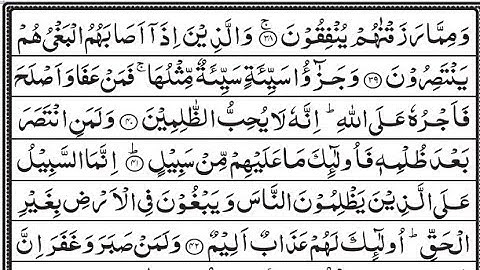 وَمِمَّا رَزَقْنٰهُمْ يُنْفِقُوْنَ ۚ﴿۳۸﴾ وَالَّذِيْنَ اِذَاۤ اَصَابَهُمُ الْبَغْىُ هُمْ
يَنْتَصِرُوْنَ ﴿۳۹﴾ وَجَزٰٓؤُا سَيِّئَةٍ سَيِّئَةٌ مِّثْلُهَا ۚ فَمَنْ عَفَا وَاَصْلَحَ
فَاَجْرُهٗ عَلَى اللّٰهِ ؕ اِنَّهٗ لَا يُحِبُّ الظّٰلِمِيْنَ ﴿۴۰﴾ وَلَمَنِ انْتَصَرَ
بَعْدَ ظُلْمِهٖ فَاُولٰٓئِكَ مَا عَلَيْهِمْ مِّنْ سَبِيْلٍ ؕ﴿۴۱﴾ اِنَّمَا السَّبِيْلُ
عَلَى الَّذِيْنَ يَظْلِمُوْنَ النَّاسَ وَيَبْغُوْنَ فِى الْاَرْضِ بِغَيْرِ
الْحَقِّ ؕ اُولٰٓئِكَ لَهُمْ عَذَابٌ اَلِيْمٌ ﴿۴۲﴾ وَلَمَنْ صَبَرَ وَغَفَرَ اِنَّ